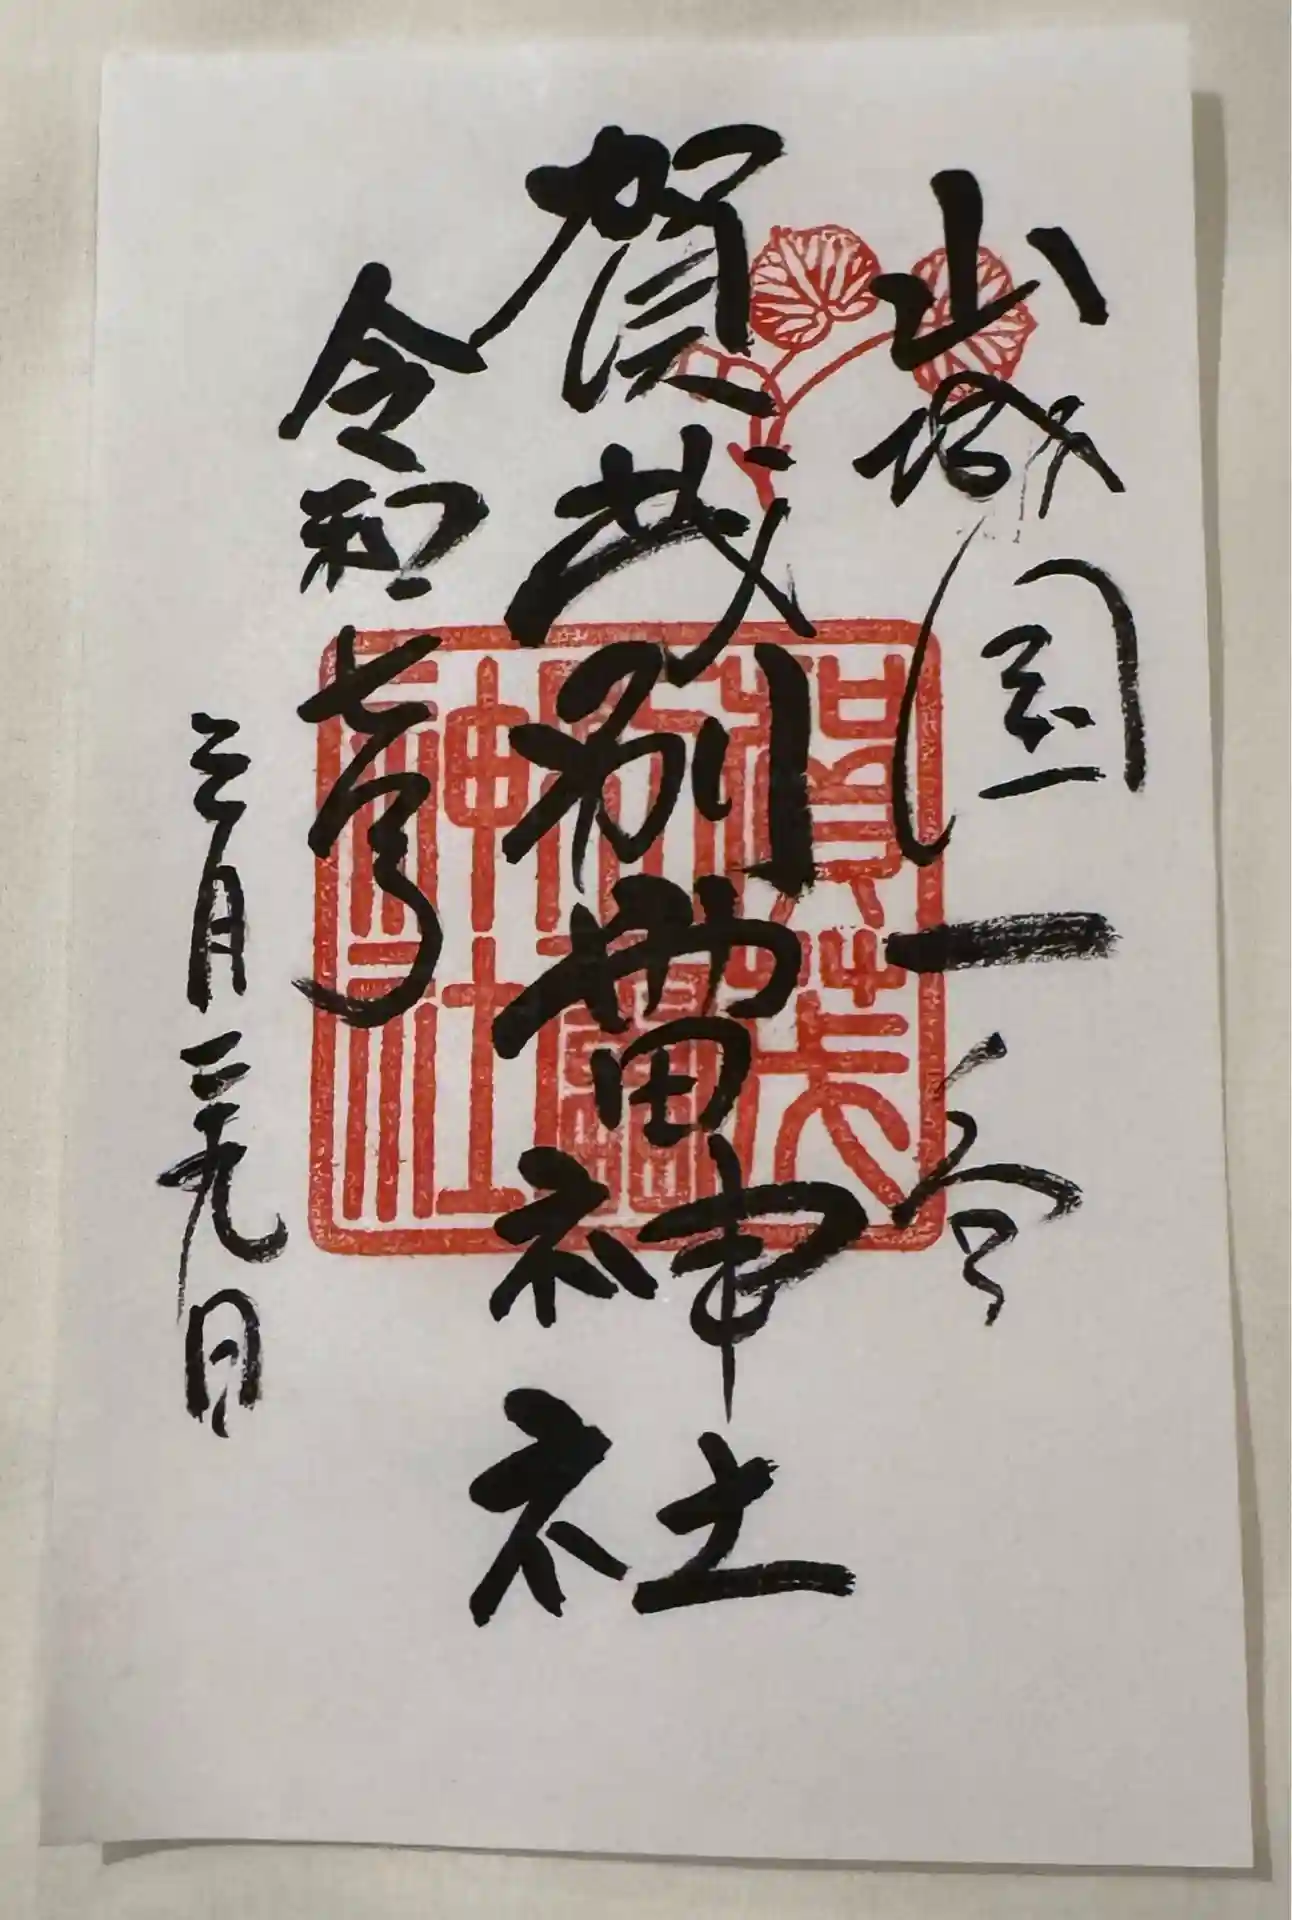 山城国一宮
賀茂別雷神社
令和七年
三月二十九日
賀茂
別雷
神社